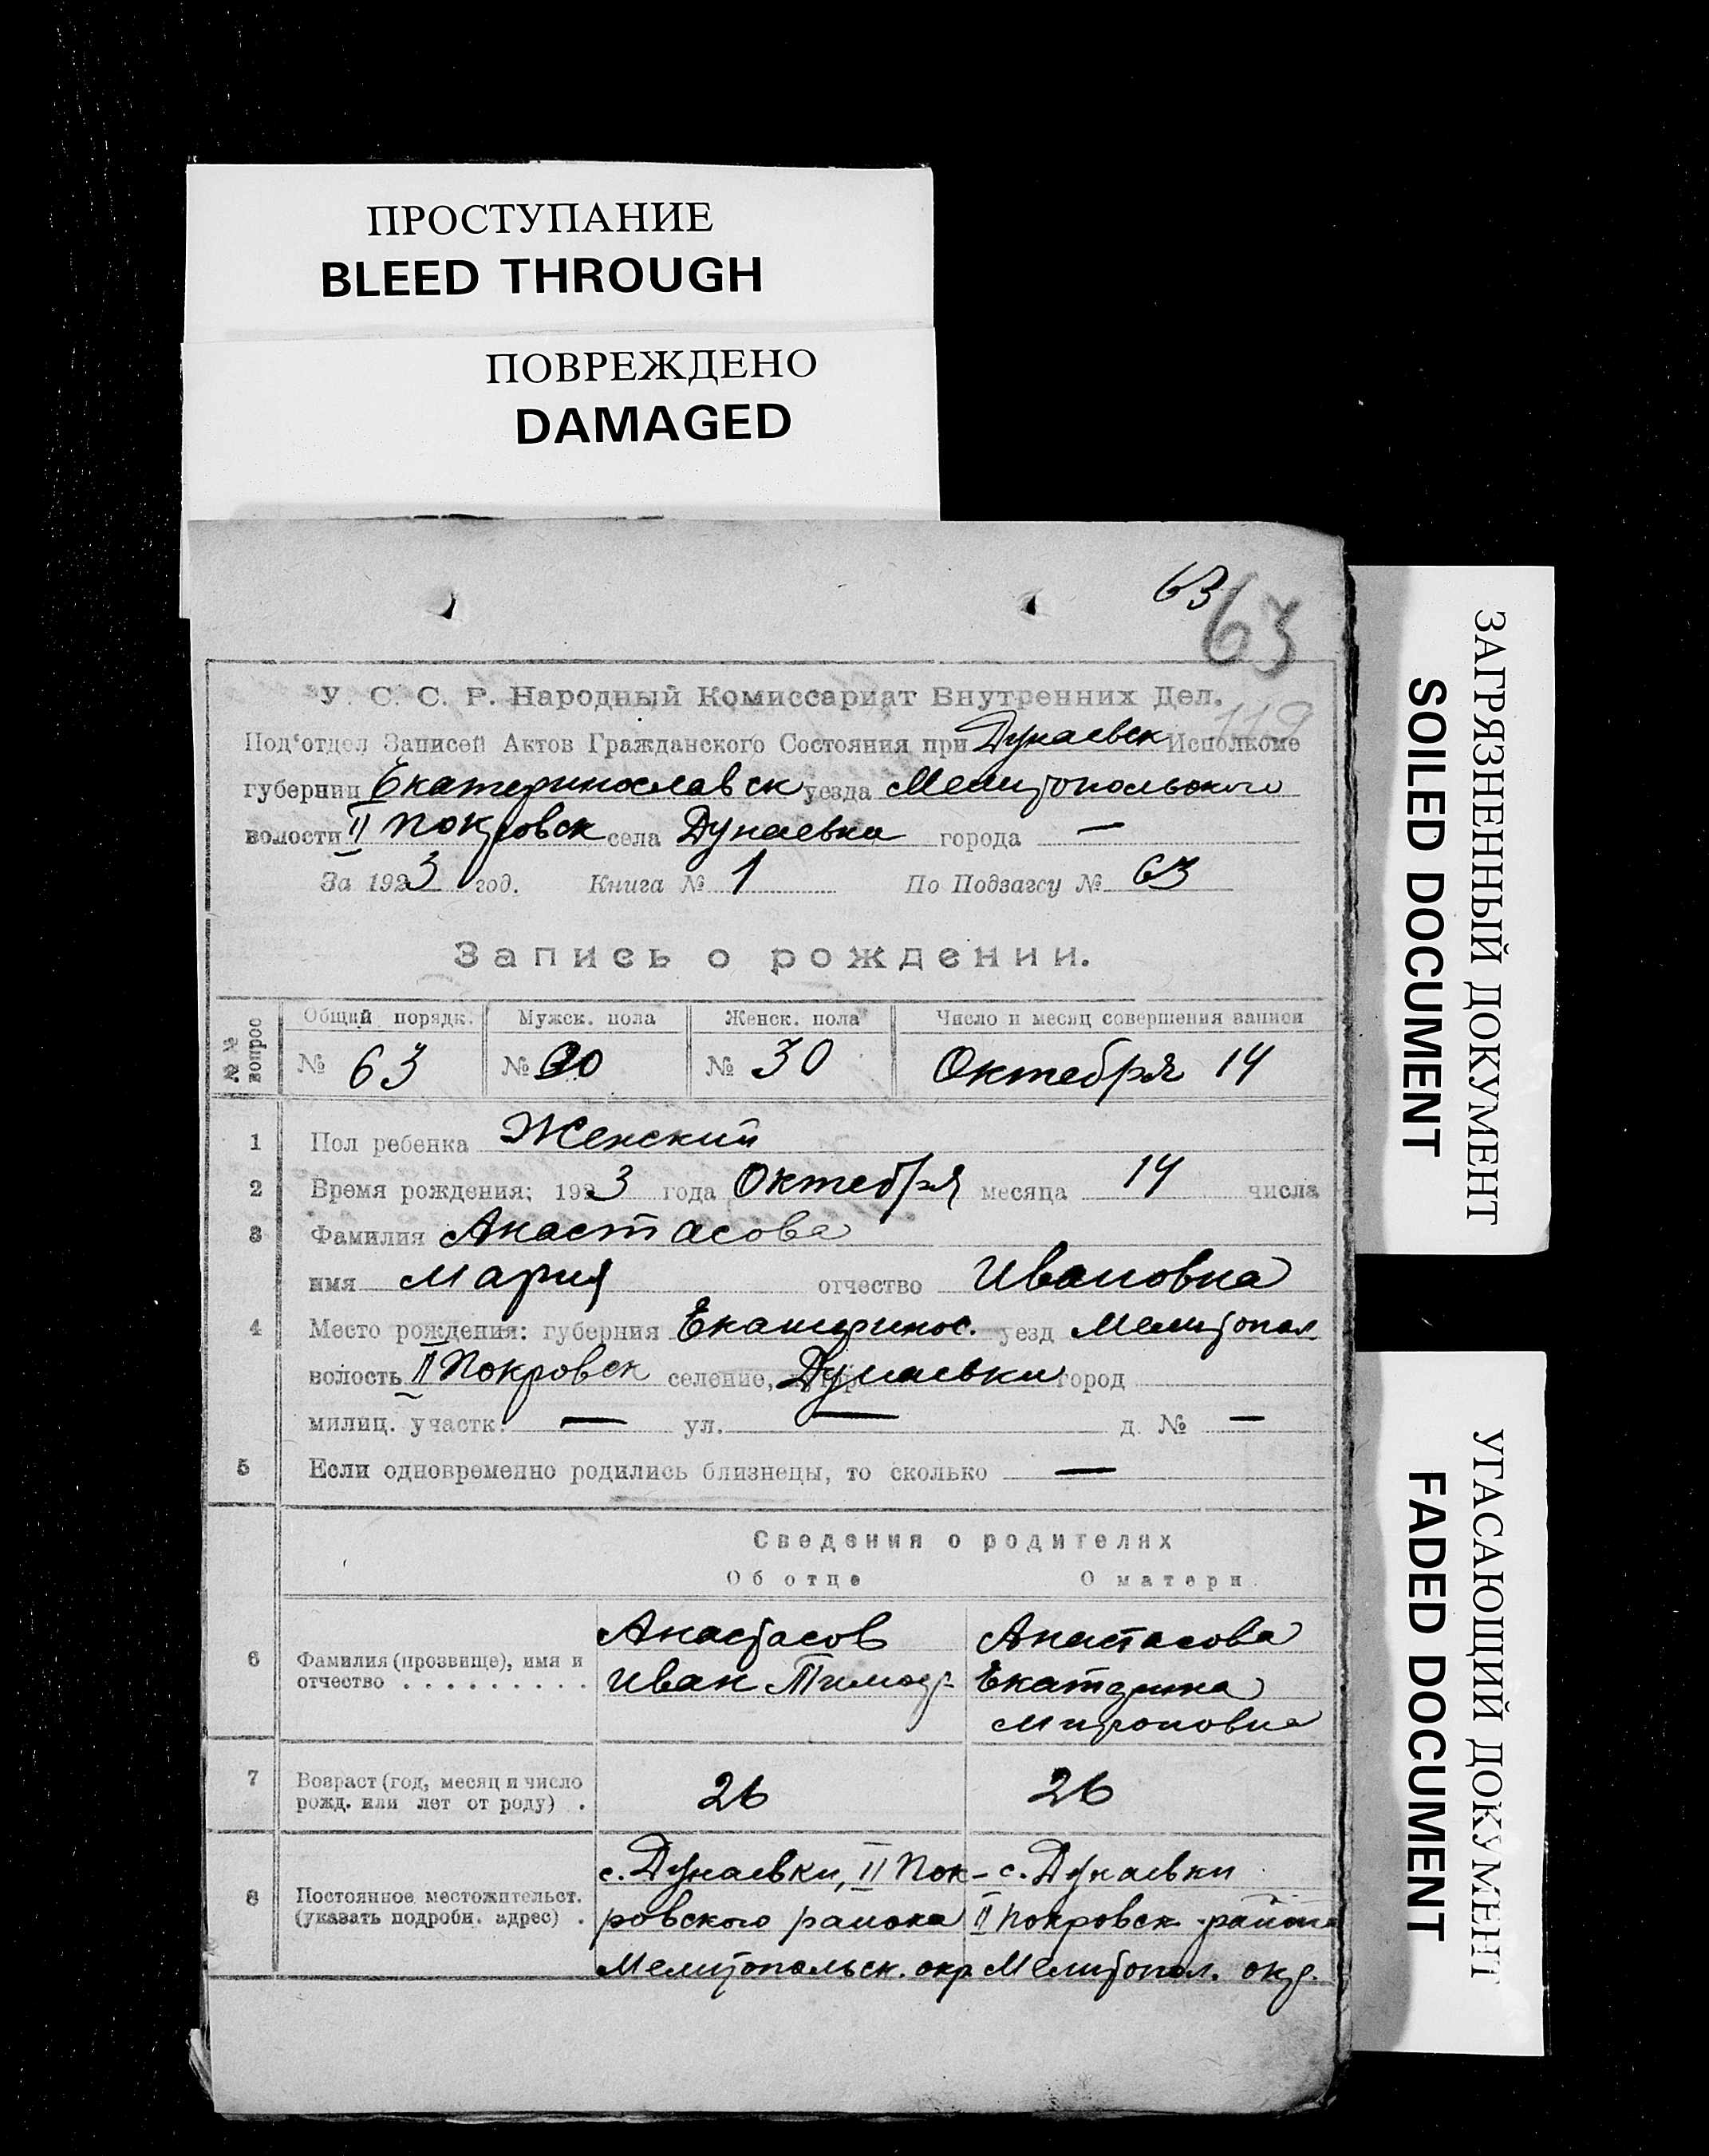 ПРОСТУПАНИЕ
BLEED THROUGH
ПОВРЕЖДЕНО
DAMAGED
63
63
119
У. С. С. Р. Народный Комиссариат Внутренних Дел.
Под'отдел Записей Актов Гражданского Состояния при Дунаевск Исполкоме
губернии Екатеринославск уезда Мелитопольского
волости II Покровск села Дунаевка города —
За 1923 год. Книга № 1 По Подзагсу № 63
Запись о рождении.
№№ вопрос
Общий порядк. Мужск. пола Женск. пола Число и месяц совершения записи
№ 63 № № 30 Октября 14
1 Пол ребенка Женский
2 Время рождения; 1923 года Октября месяца 14 числа
3 Фамилия Анастасова
имя Мария отчество Ивановна
4 Место рождения: губерния Екатеринос. уезд Мелитопол
волость II Покровск селение, Дунаевки город
милиц. участк. — ул. — д. № —
5 Если одновременно родились близнецы, то сколько —
Сведения о родителях
Об отце О матери
6 Фамилия (прозвище), имя и отчество . . . . . . . . .
Анастасов
Иван Тимоф-
Анастасова
Екатерина
Мироновна
7 Возраст (год, месяц и число рожд. или лет от роду) .
26
26
8 Постоянное местожительст. (указать подробн. адрес) .
с. Дунаевки, II Пок-
ровского района
Мелитопольск. окр.
с. Дунаевки
II Покровск района
Мелитопол. окр.
ЗАГРЯЗНЕННЫЙ ДОКУМЕНТ
SOILED DOCUMENT
УГАСАЮЩИЙ ДОКУМЕНТ
FADED DOCUMENT